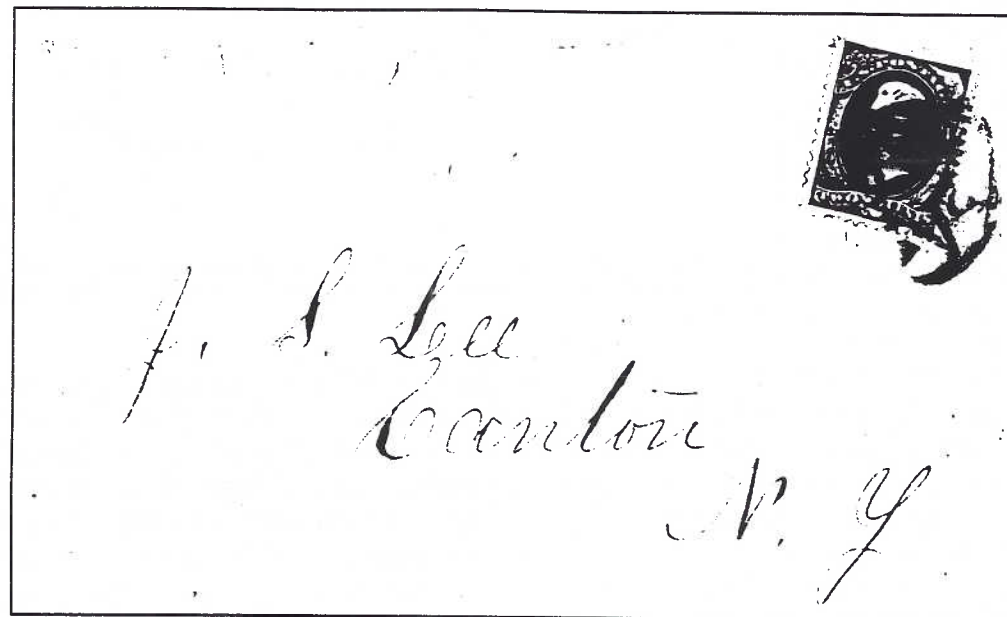 J. S. Lee
Canton
N. Y